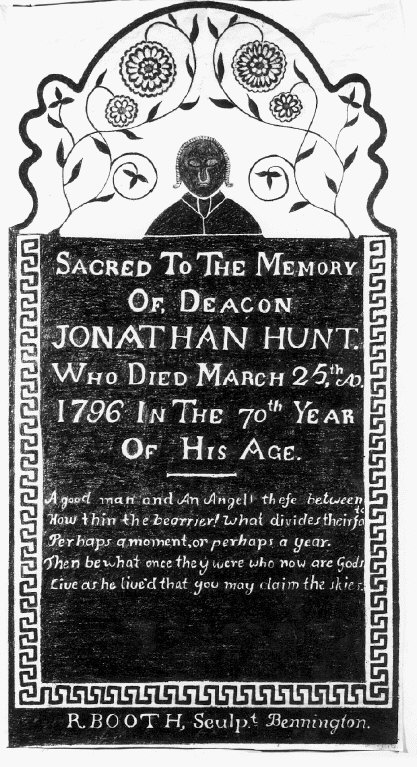 SACRED TO THE MEMORY
OF, DEACON
JONATHAN HUNT.
WHO DIED MARCH 25,th AD.
1796 IN THE 70th YEAR
OF HIS AGE.
A good man and An Angel! thefe between
How thin the bearrier! what divides their
Perhaps a moment, or perhaps a year.
Then be what once they were who now are Gods
Live as he live'd that you may claim the skies.
R. BOOTH, Sculpt. Bennington.